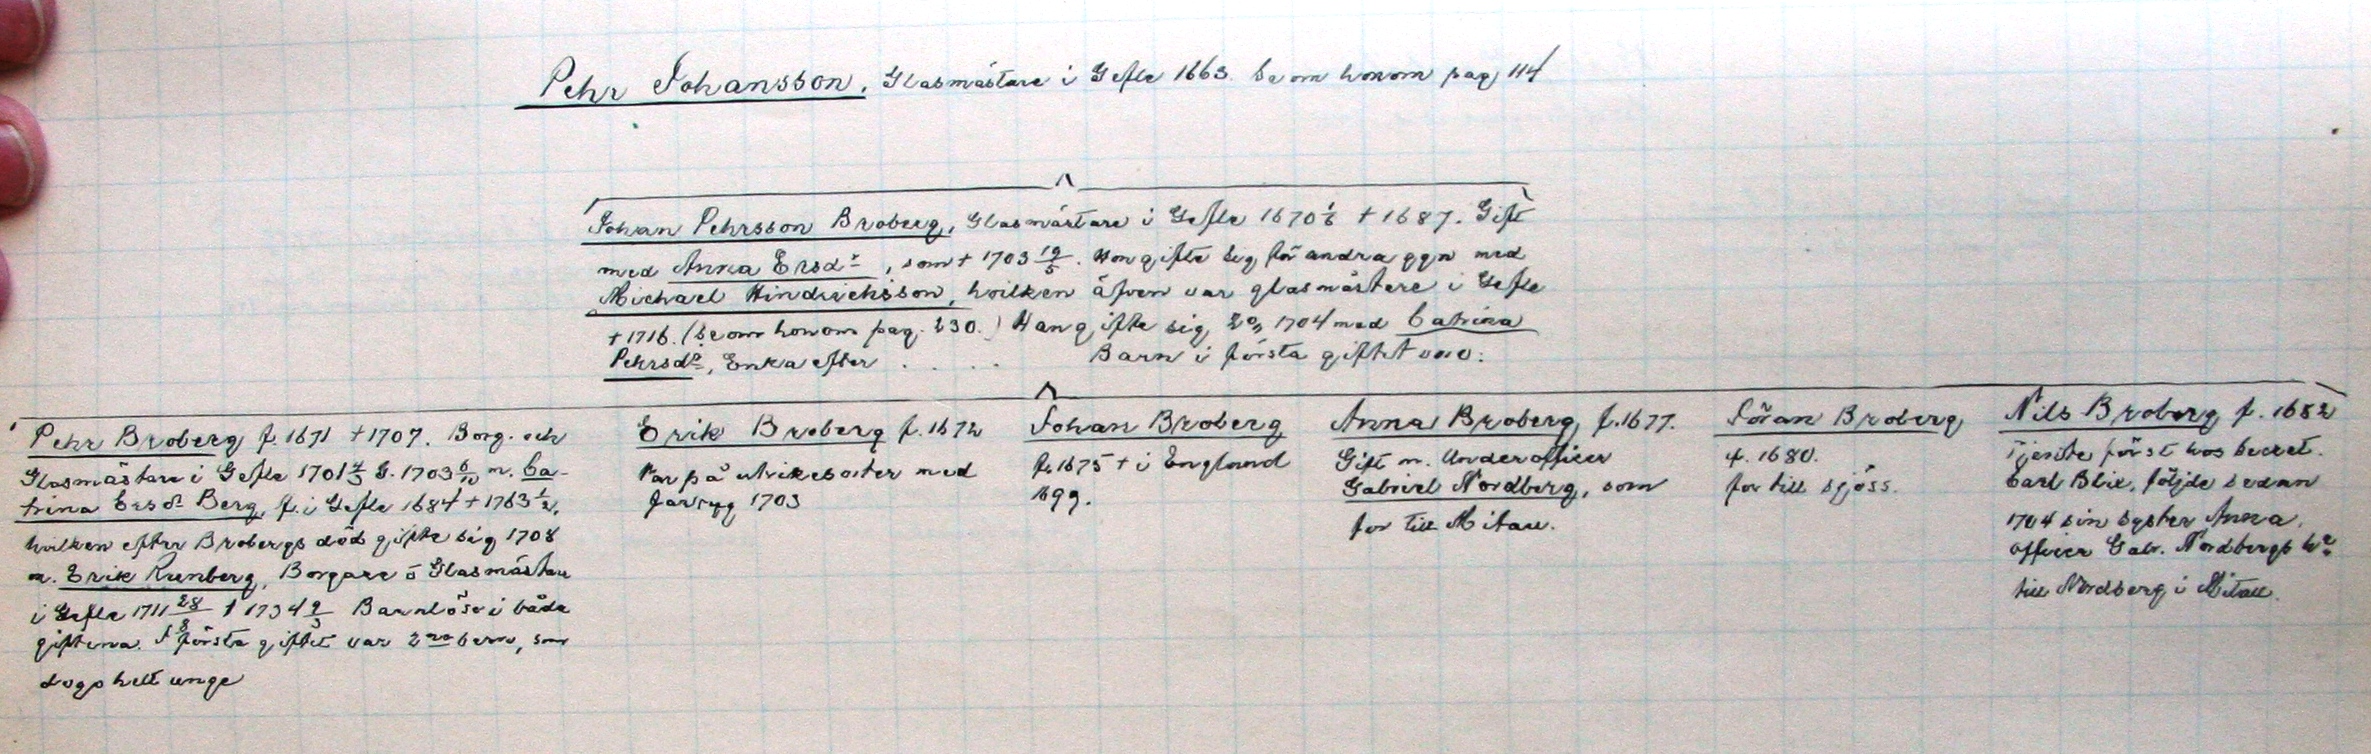 Pehr Johansson, Glasmästare i Gefle 1663. Se om honom pag 114
Johan Pehrsson Broberg, Glasmästare i Gefle 1670 † 1687. Gift
med Anna Ersdr, som † 1703 19/5. Hon gifte sig för andra ggn med
Michael Hindrichsson, hvilken äfven var glasmästere i Gefle
† 1716. (Se om honom pag. 230.) Han gifte sig 1704 med Catrina
Pehrsdr, Enka efter . . . . Barn i första giftet voro:
Pehr Broberg f. 1671 † 1707. Borg. och
Glasmästare i Gefle 1701 G. 1703 6/10 m. Ca-
trina Ersdr Berg, f. i Gefle 1684 † 1763 1/2,
hvilken efter Brobergs död gifte sig 1708
m. Erik Runberg, Borgare o Glasmästare
i Gefle 1711 28/8 † 1734 9/3 Barnlöse i båda
giftena. I första giftet var 2ne barn, som
dogo helt unge
Erik Broberg f. 1672
Var på utrikesorter med
1703
Johan Broberg
f. 1675 † i England
1699.
Anna Broberg, f. 1677.
Gift m. Underofficer
Gabriel Nordberg, som
for till Mitau.
Söran Broberg,
f. 1680.
for till sjöss.
Nils Broberg f. 1682
Tjente först hos Secret.
Carl Blix, följde sedan
1704 sin syster Anna,
officer Gabr. Nordbergs
till Nordberg i Mitau.